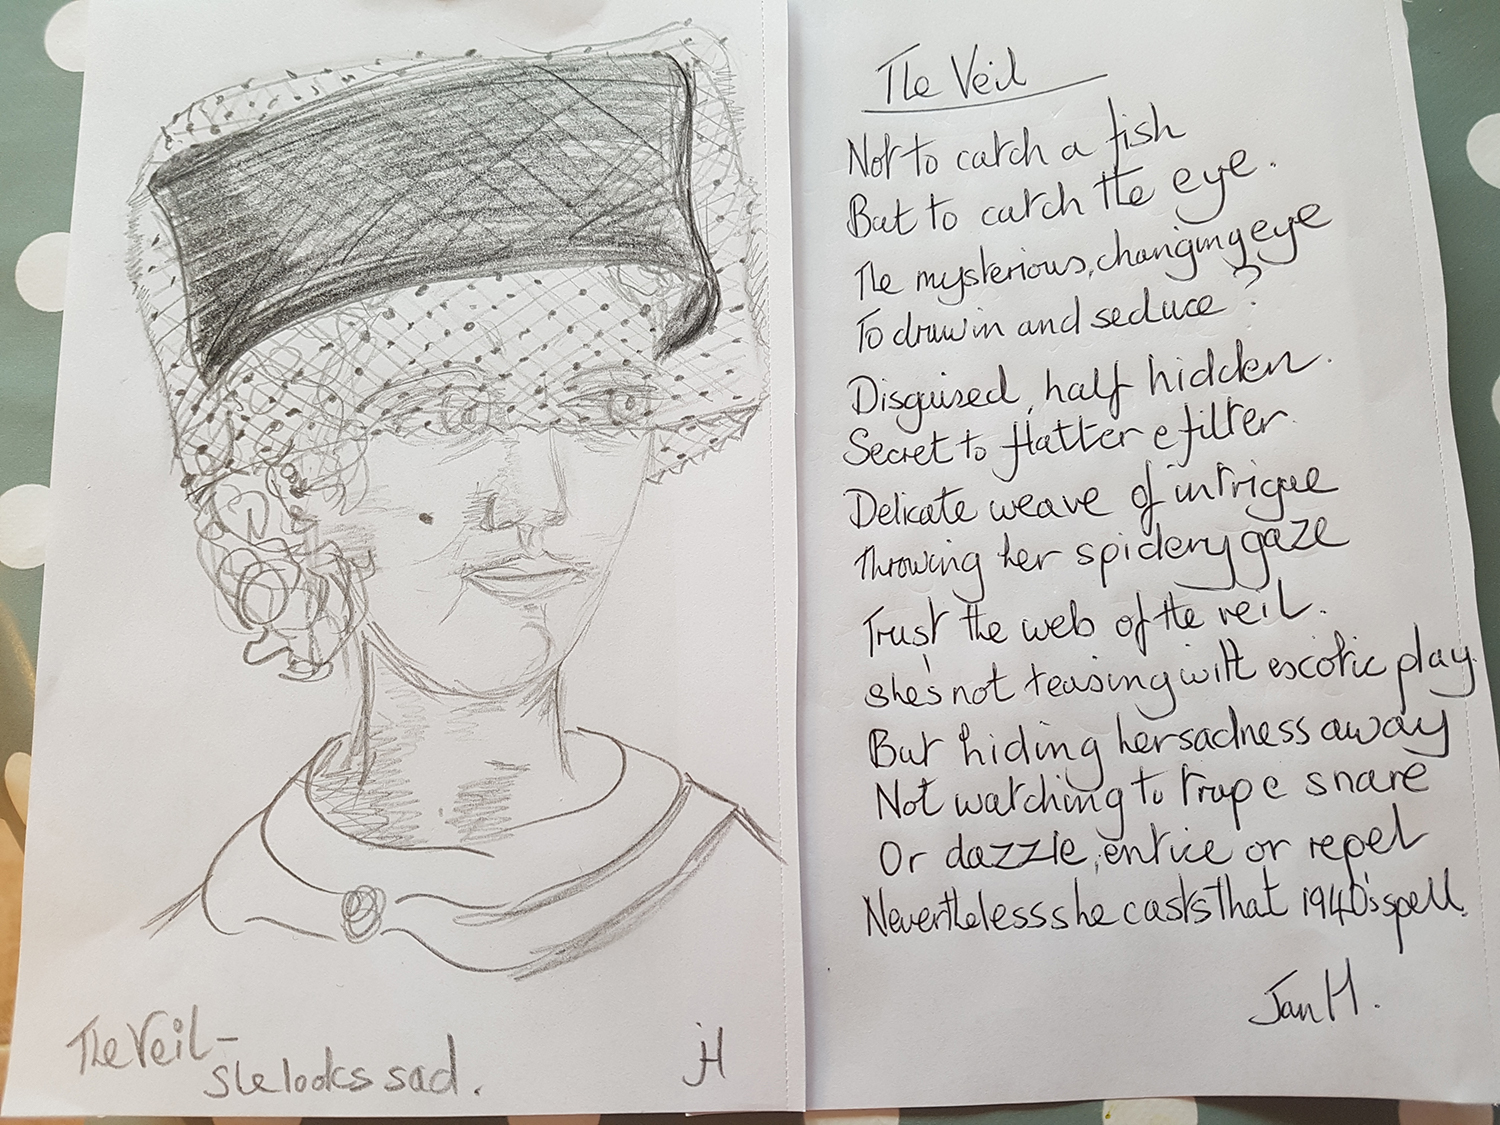 The Veil
Not to catch a fish
But to catch the eye.
The mysterious, changing eye
To draw in and seduce?
Disguised, half hidden.
Secret to flatter & filter.
Delicate weave of intrigue
Throwing her spidery gaze
Trust the web of the veil.
She's not teasing with escotic play.
But hiding her sadness away
Not watching to trap & snare
Or dazzle, entice or repel
Nevertheless she casts that 1940's spell.
Jan H.
The Veil -
she looks sad.
jH